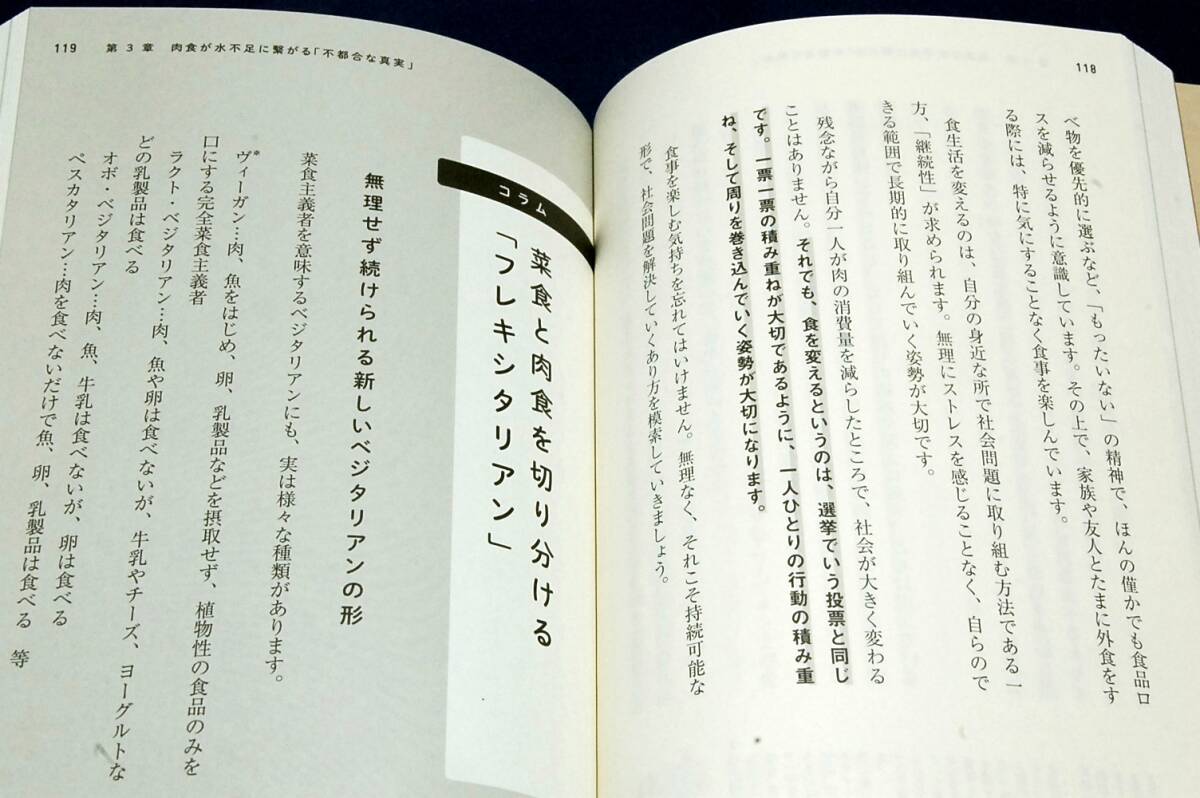 118
べ物を優先的に選ぶなど、「もったいない」の精神で、ほんの僅かでも食品ロ
スを減らせるように意識しています。その上で、家族や友人とたまに外食をす
る際には、特に気にすることなく食事を楽しんでいます。
食生活を変えるのは、自分の身近な所で社会問題に取り組む方法である一
方、「継続性」が求められます。無理にストレスを感じることなく、自らので
きる範囲で長期的に取り組んでいく姿勢が大切です。
残念ながら自分一人が肉の消費量を減らしたところで、社会が大きく変わる
ことはありません。それでも、食を変えるというのは、選挙でいう投票と同じ
です。一票一票の積み重ねが大切であるように、一人ひとりの行動の積み重
ね、そして周りを巻き込んでいく姿勢が大切になります。
食事を楽しむ気持ちを忘れてはいけません。無理なく、それこそ持続可能な
形で、社会問題を解決していくあり方を模索していきましょう。
119 第3章 肉食が水不足に繋がる「不都合な真実」
コラム
菜食と肉食を切り分ける
「フレキシタリアン」
無理せず続けられる新しいベジタリアンの形
菜食主義者を意味するベジタリアンにも、実は様々な種類があります。
ヴィーガン※…肉、魚をはじめ、卵、乳製品などを摂取せず、植物性の食品のみを
口にする完全菜食主義者
ラクト・ベジタリアン…肉、魚や卵は食べないが、牛乳やチーズ、ヨーグルトな
どの乳製品は食べる
オボ・ベジタリアン…肉、魚、牛乳は食べないが、卵は食べる
ペスカタリアン…肉を食べないだけで魚、卵、乳製品は食べる 等